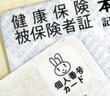 健康保険
被保険者証
本
記
個人番号
カード